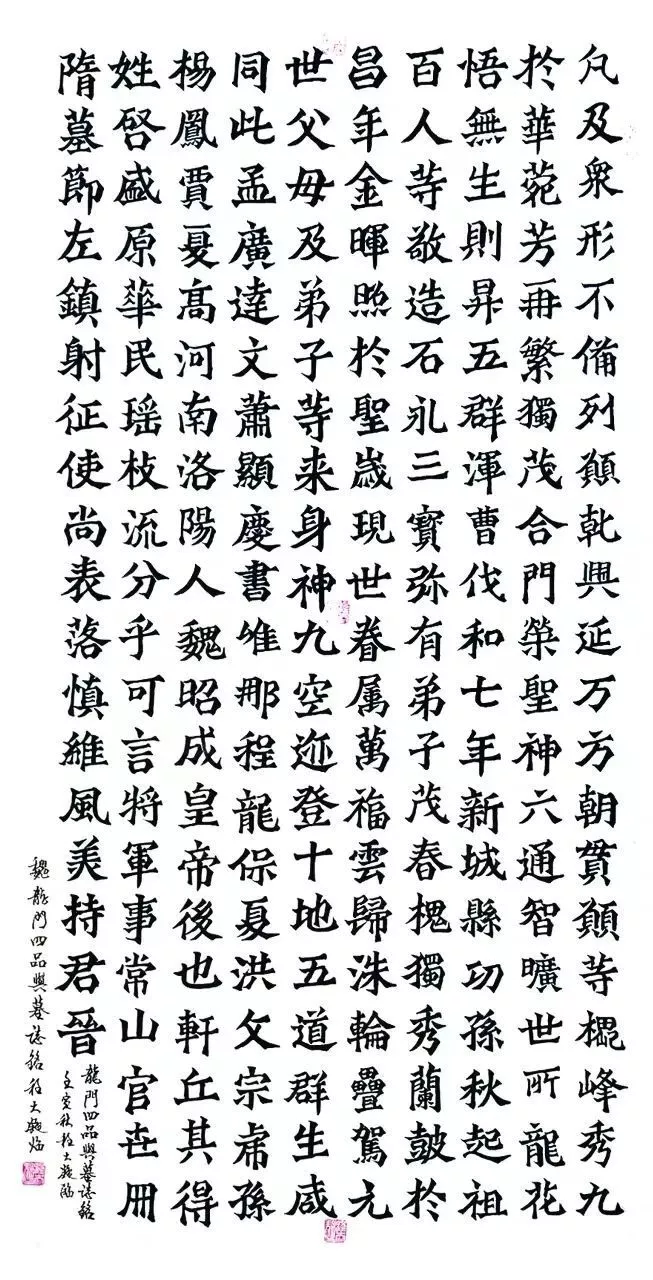 凢及衆形不備列願乹興延万方朝貫願等峰秀九
於華菀芳再繁獨茂合門榮聖神六通智曠世所龍花
悟無生則昇五群渾曹伐和七年新城縣功孫秋起祖
百人等敬造石永三寶弥有弟子茂春槐獨秀蘭鼓於
昌年金暉照於聖歲現世眷属萬福雲歸洙輪疊駕元
世父母及弟子等来身神九空迩登十地五道群生咸
同此孟廣達文蕭顯慶書唯那程龍保夏洪文宗席孫
楊鳳賈夏髙河南洛陽人魏昭成皇帝後也軒丘其得
姓啓盛原華民瑶枝流分乎可言將軍事常山官世冊
隋墓節左鎮射征使尚表落慎維風美持君晉
龍門四品與墓誌銘
壬寅秋程大臨
魏龍門四品與墓誌銘程大臨